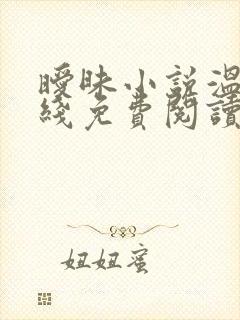 曖昧小說溫
綫免費閱讀
妞妞蜜